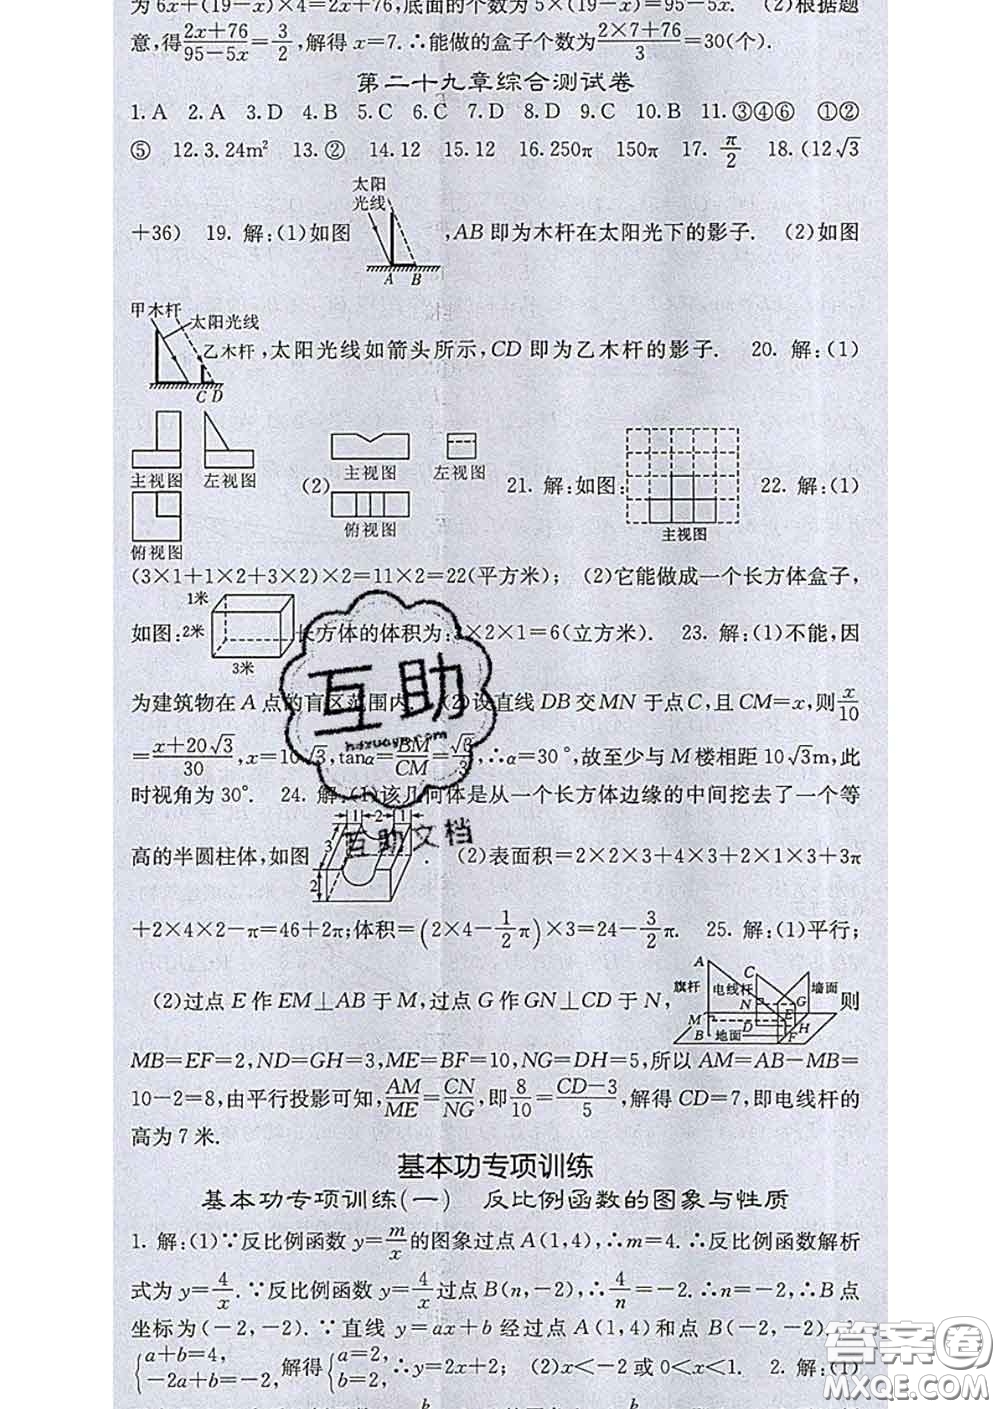 为 6x+(19-x)×4=2x+76,底面的个数为 5×(19-x)=95-5x. (2)根据题
意,得(2x+76)/(95-5x)=3/2,解得 x=7.∴能做的盒子个数为(2×7+76)/3=30(个).
第二十九章综合测试卷
1. A 2. A 3. D 4. B 5. C 6. C 7. D 8. D 9. C 10. B 11. ③④⑥ ①②
⑤ 12. 3. 24m² 13. ② 14. 12 15. 12 16. 250π 150π 17. π/2 18. (12√3
太阳
光线
A B
+36) 19. 解:(1)如图 ,AB 即为木杆在太阳光下的影子. (2)如图
甲木杆
太阳光线
乙木杆
C D
,太阳光线如箭头所示,CD 即为乙木杆的影子. 20. 解:(1)
主视图 左视图
俯视图
(2)
主视图 左视图
俯视图
21. 解:如图:
主视图
22. 解:(1)
(3×1+1×2+3×2)×2=11×2=22(平方米); (2)它能做成一个长方体盒子,
1米
2米
3米
如图: 长方体的体积为: ×2×1=6(立方米). 23. 解:(1)不能,因
为建筑物在 A 点的盲区范围内 (2)设直线 DB 交 MN 于点 C,且 CM=x,则 x/10
=(x+20√3)/30,x=10√3,tanα=BM/CM=√3/3,∴α=30°,故至少与 M 楼相距 10√3m,此
时视角为 30°. 24. 解:(1)该几何体是从一个长方体边缘的中间挖去了一个等
1 2 1
3
2
高的半圆柱体,如图 . (2)表面积=2×2×3+4×3+2×1×3+3π
+2×4×2-π=46+2π;体积=(2×4-1/2π)×3=24-3/2π. 25. 解:(1)平行;
A
旗杆 电线杆 C 墙面
N G
M E
D H
B 地面 F
(2)过点 E 作 EM⊥AB 于 M,过点 G 作 GN⊥CD 于 N, 则
MB=EF=2,ND=GH=3,ME=BF=10,NG=DH=5,所以 AM=AB-MB=
10-2=8,由平行投影可知,AM/ME=CN/NG,即8/10=(CD-3)/5,解得 CD=7,即电线杆的
高为 7 米.
基本功专项训练
基本功专项训练(一) 反比例函数的图象与性质
1. 解:(1)∵反比例函数 y=m/x的图象过点 A(1,4),∴m=4.∴反比例函数解析
式为 y=4/x.∵反比例函数 y=4/x过点 B(n,-2),∴4/n=-2.∴n=-2,∴B 点
坐标为(-2,-2).∵直线 y=ax+b 经过点 A(1,4)和点 B(-2,-2),∴
{a+b=4, -2a+b=-2, 解得{a=2, b=2, ∴y=2x+2; (2)x<-2 或 0<x<1. 2. 解:(1)
互助
hdzuoye.com
互助文档
答案圈
MXQE.COM